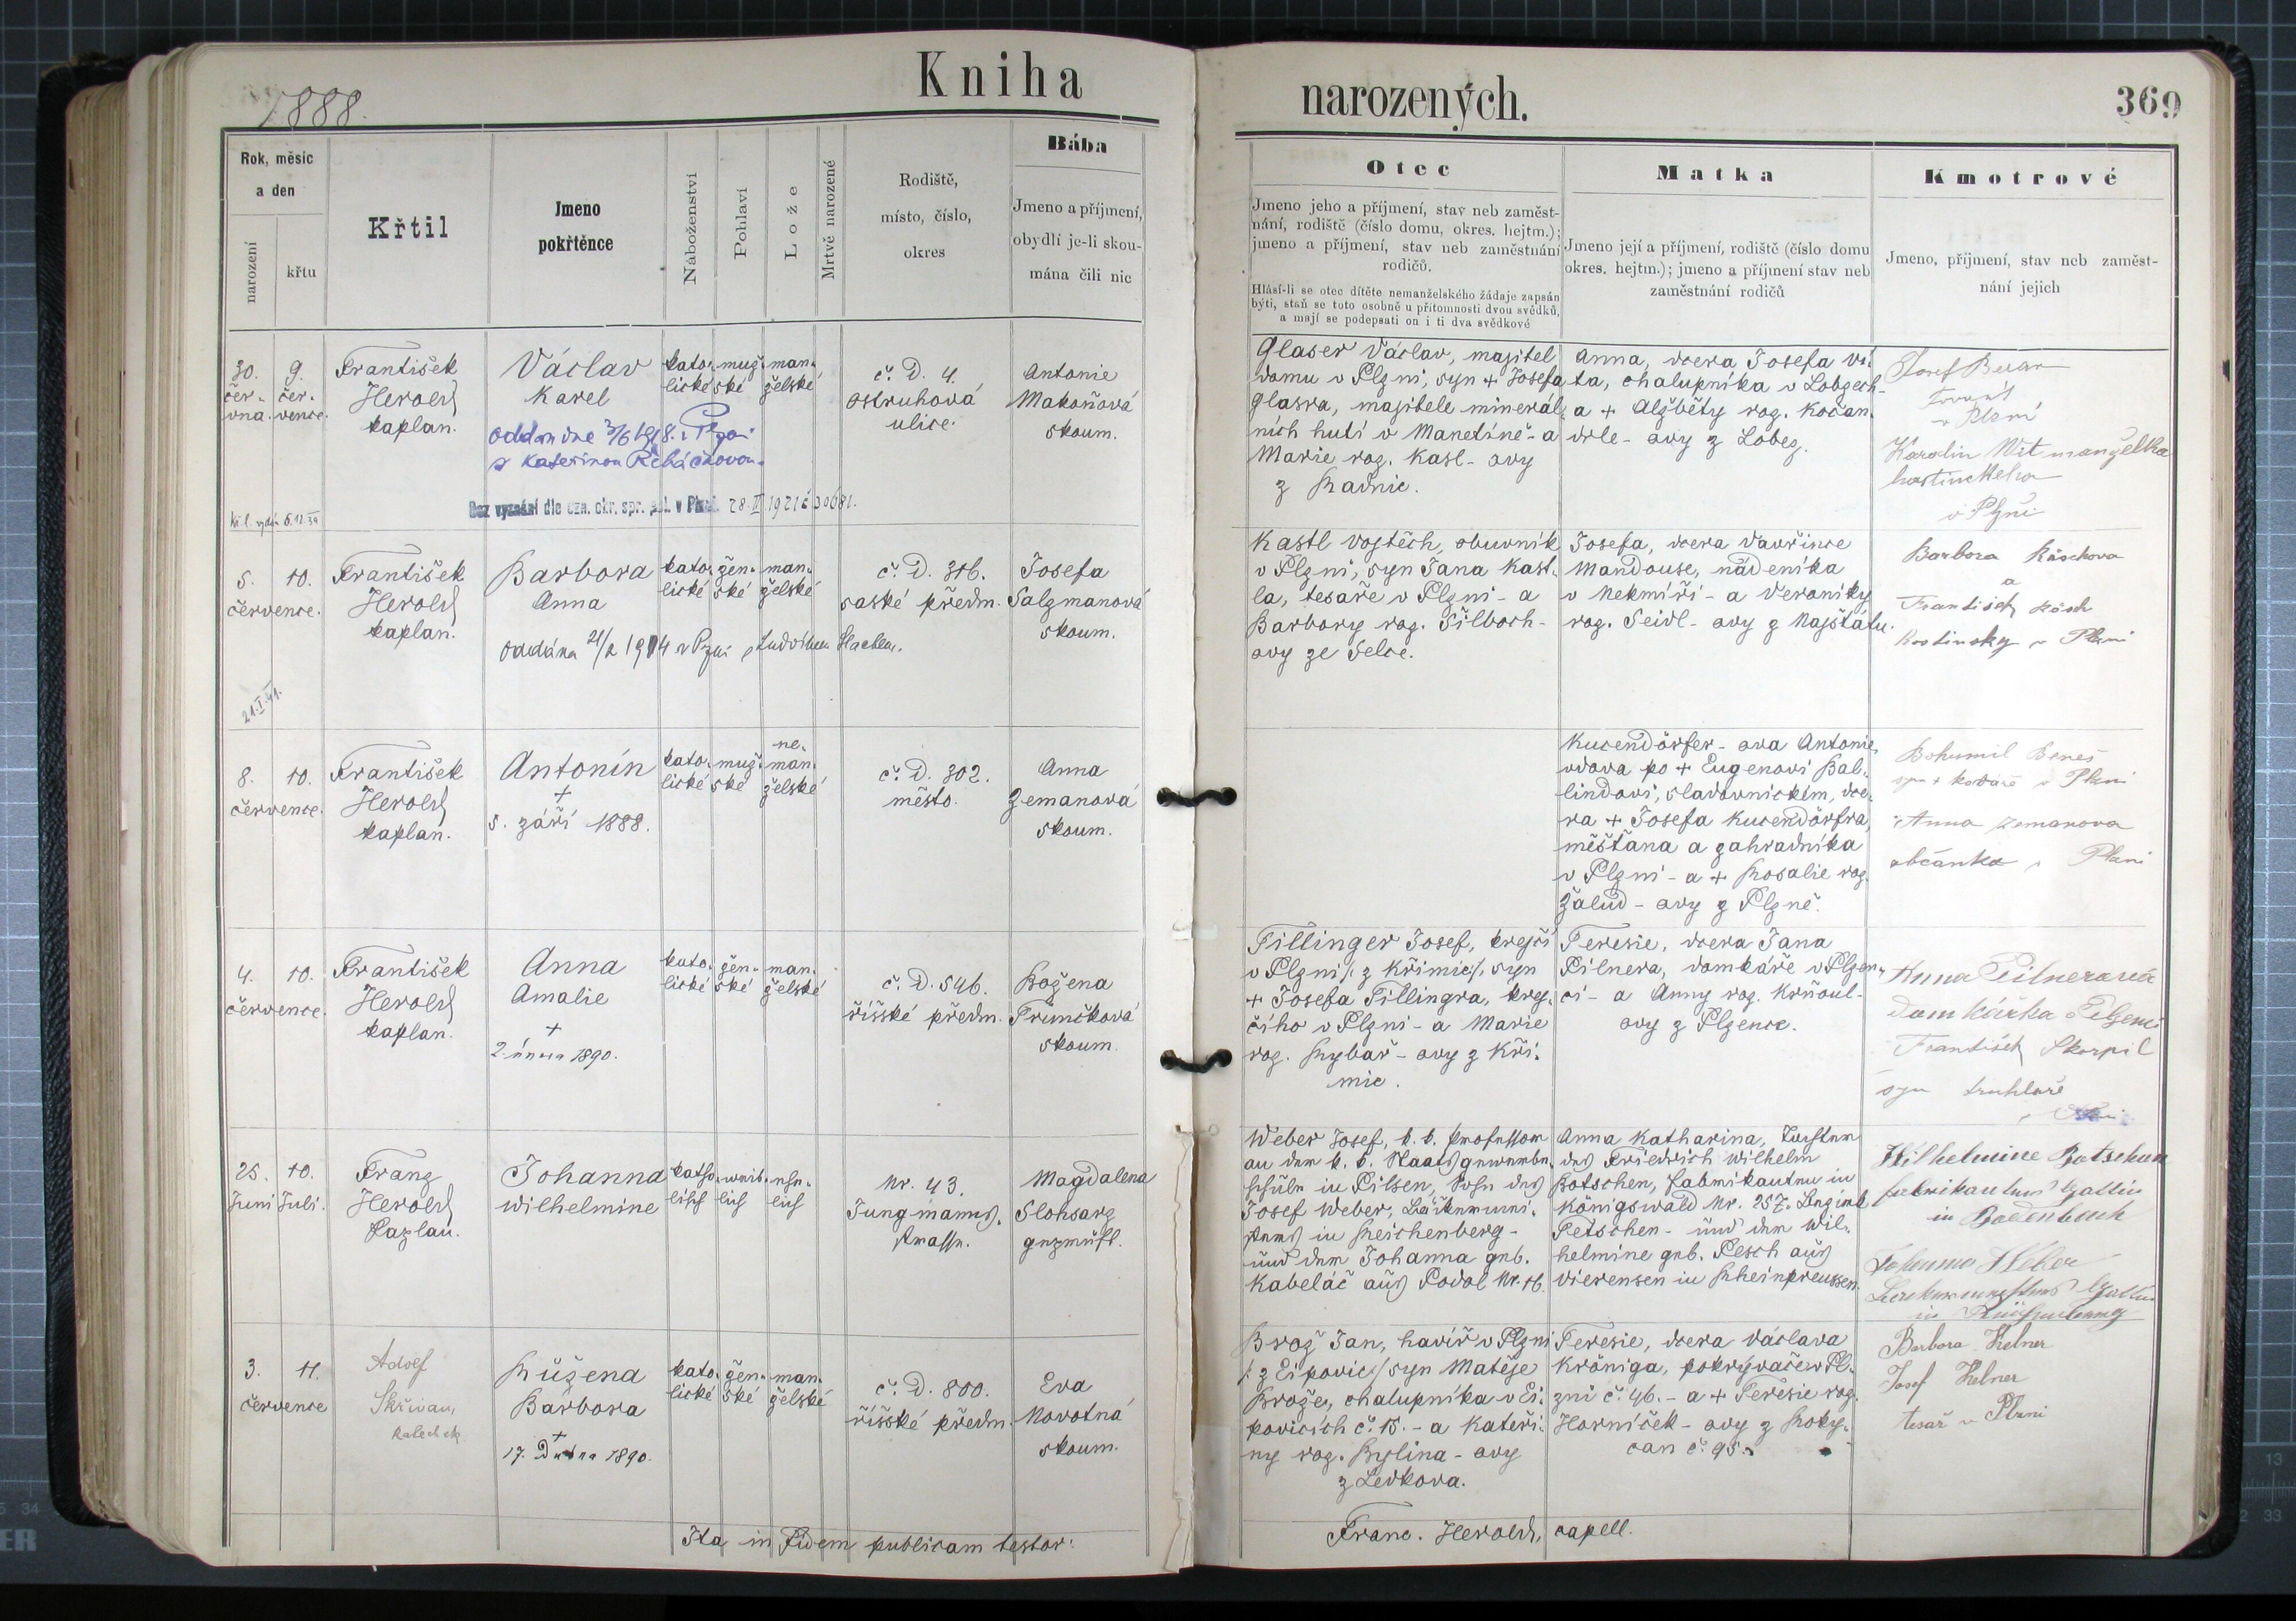 1888.
Kniha
narozených.
369
Rok, měsíc
a den
narození
křtu
Křtil
Jmeno
pokřtěnce
Náboženství
Pohlaví
Lože
Mrtvě narozené
Rodiště,
místo, číslo,
okres
Bába
Jmeno a příjmení,
obydlí je-li skou-
mána čili nic
Otec
Jmeno jeho a příjmení, stav neb zaměst-
nání, rodiště (číslo domu, okres. hejtm.);
jmeno a příjmení, stav neb zaměstnání
rodičů.
Hlásí-li se otec dítěte nemanželského žádaje zapsán
býti, staň se toto osobně u přítomnosti dvou svědků,
a mají se podepsati on i ti dva svědkové
Matka
Jmeno její a příjmení, rodiště (číslo domu
okres. hejtm.); jmeno a příjmení stav neb
zaměstnání rodičů
Kmotrové
Jmeno, příjmení, stav neb zaměst-
nání jejich
30.
čer-
vna.
9.
čer-
vence.
František
Herold
kaplan.
Václav
Karel
oddán dne 3/6 1918 v Plzni
s Kateřinou
Bez vyznání dle ozn. okr. spr. pol. v Plzni 28. II 1921 č 30681.
kř. l. vydán 6.12.39
kato-
lické
muž-
ské
man-
želské
č. D. 4.
ostruhová
ulice.
Antonie
Makoňová
skoum.
Glaser Václav, majitel
domu v Plzni, syn + Josefa
Glasra, majitele minerál-
ních hutí v Manetíně - a
Marie roz. Kasl - ovy
z Radnic.
Anna, dcera Josefa Ví-
ta, chalupníka v Lobzech-
a + Alžběty roz. Kočan-
drle - ovy z Lobez.
Josef
v Plzni
Karolin Wit manželka
hostinckeho
v Plzni
5.
10.
července.
František
Herold
kaplan.
Barbora
Anna
oddána 21/2 1914 v Plzni s Ludvíkem
21.I.41.
kato-
lické
žen-
ské
man-
želské
č. D. 316.
saské předm.
Josefa
Salzmanová
skoum.
Kastl Vojtěch, obuvník
v Plzni, syn Jana Kast-
la, tesaře v Plzni - a
Barbory roz. Šilboch-
ovy ze Selce.
Josefa, dcera Vavřince
Mandouse, nádeníka
v Nekmíři - a Veroniky
roz. Seidl - ovy z Majštálu.
Barbora Räschova
a
František Räsch
hostinsky v Plzni
8.
10.
července.
František
Herold
kaplan.
Antonín
+
5. září 1888.
kato-
lické
muž-
ské
ne-
man-
želské
č. D. 302.
město.
Anna
Zemanová
skoum.
Kucendörfer - ova Antonie,
vdova po + Eugenovi Bal-
lindovi, sladovnickém, dce-
ra + Josefa Kucendörfra,
měšťana a zahradníka
v Plzni - a + Rosalie roz.
Žalud - ovy z Plzně.
Bohumil Beneš
syn + kováře v Plzni
Anna Zemanova
občanka v Plzni
4.
10.
července.
František
Herold
kaplan.
Anna
Amalie
+
2. února 1890.
kato-
lické
žen-
ské
man-
želské
č. D. 546.
říšské předm.
Božena
Trunčková
skoum.
Tillinger Josef, krejčí
v Plzni /: z Křimic :/, syn
+ Josefa Tillingra, krej-
čího v Plzni - a Marie
roz. Rybař - ovy z Kři-
mic.
Teresie, dcera Jana
Pilnera, domkáře v Plzen-
ci - a Anny roz. Krňoul-
ovy z Plzence.
Anna Pilnerová
Domkářka Plzenci
František Skorpil
syn truhláře
25.
Juni
10.
Juli.
Franz
Herold
Kaplan.
Johanna
Wilhelmine
katho-
lisch
weib-
lich
ehe-
lich
Nr. 43.
Jungmanns-
strasse.
Magdalena
Slohsarz
geprüft.
Weber Josef, k. k. Professor
an der k. k. Staatsgewerbe-
schule in Pilsen, Sohn des
Josef Weber, Bäckermei-
sters in Reichenberg -
und der Johanna geb.
Kabeláč aus Podol Nr. 16.
Anna Katharina, Tochter
des Friedrich Wilhelm
Botschen, Fabrikanten in
Königswald Nr. 257. Bezirk
Tetschen - und der Wil-
helmine geb. Pesch aus
Viersen in Rheinpreussen.
Wilhelmine Botschen
Fabrikantens Gattin
in Bodenbach
Johanna Weber
Bäckermeisters Gattin
in Reichenberg
3.
11.
července
Adolf
Skřivan,
katechek.
Růžena
Barbora
+
17. Dubna 1890.
kato-
lické
žen-
ské
man-
želské
č. D. 800.
říšské předm.
Eva
Novotná
skoum.
Brož Jan, havíř v Plzni
/: z Eipovic :/ syn Matěje
Brože, chalupníka v Ei-
povicích č. 15. - a Kateři-
ny roz. Bylina - ovy
z Levkova.
Teresie, dcera Václava
Königa, pokrývače v Pl-
zni č. 46. - a + Teresie roz.
Horníček - ovy z Roky-
can č. 95.
Barbora Kelner
Josef Kelner
tesař v Plzni
Ita in fidem publicam testor:
Franc. Herold, capell.